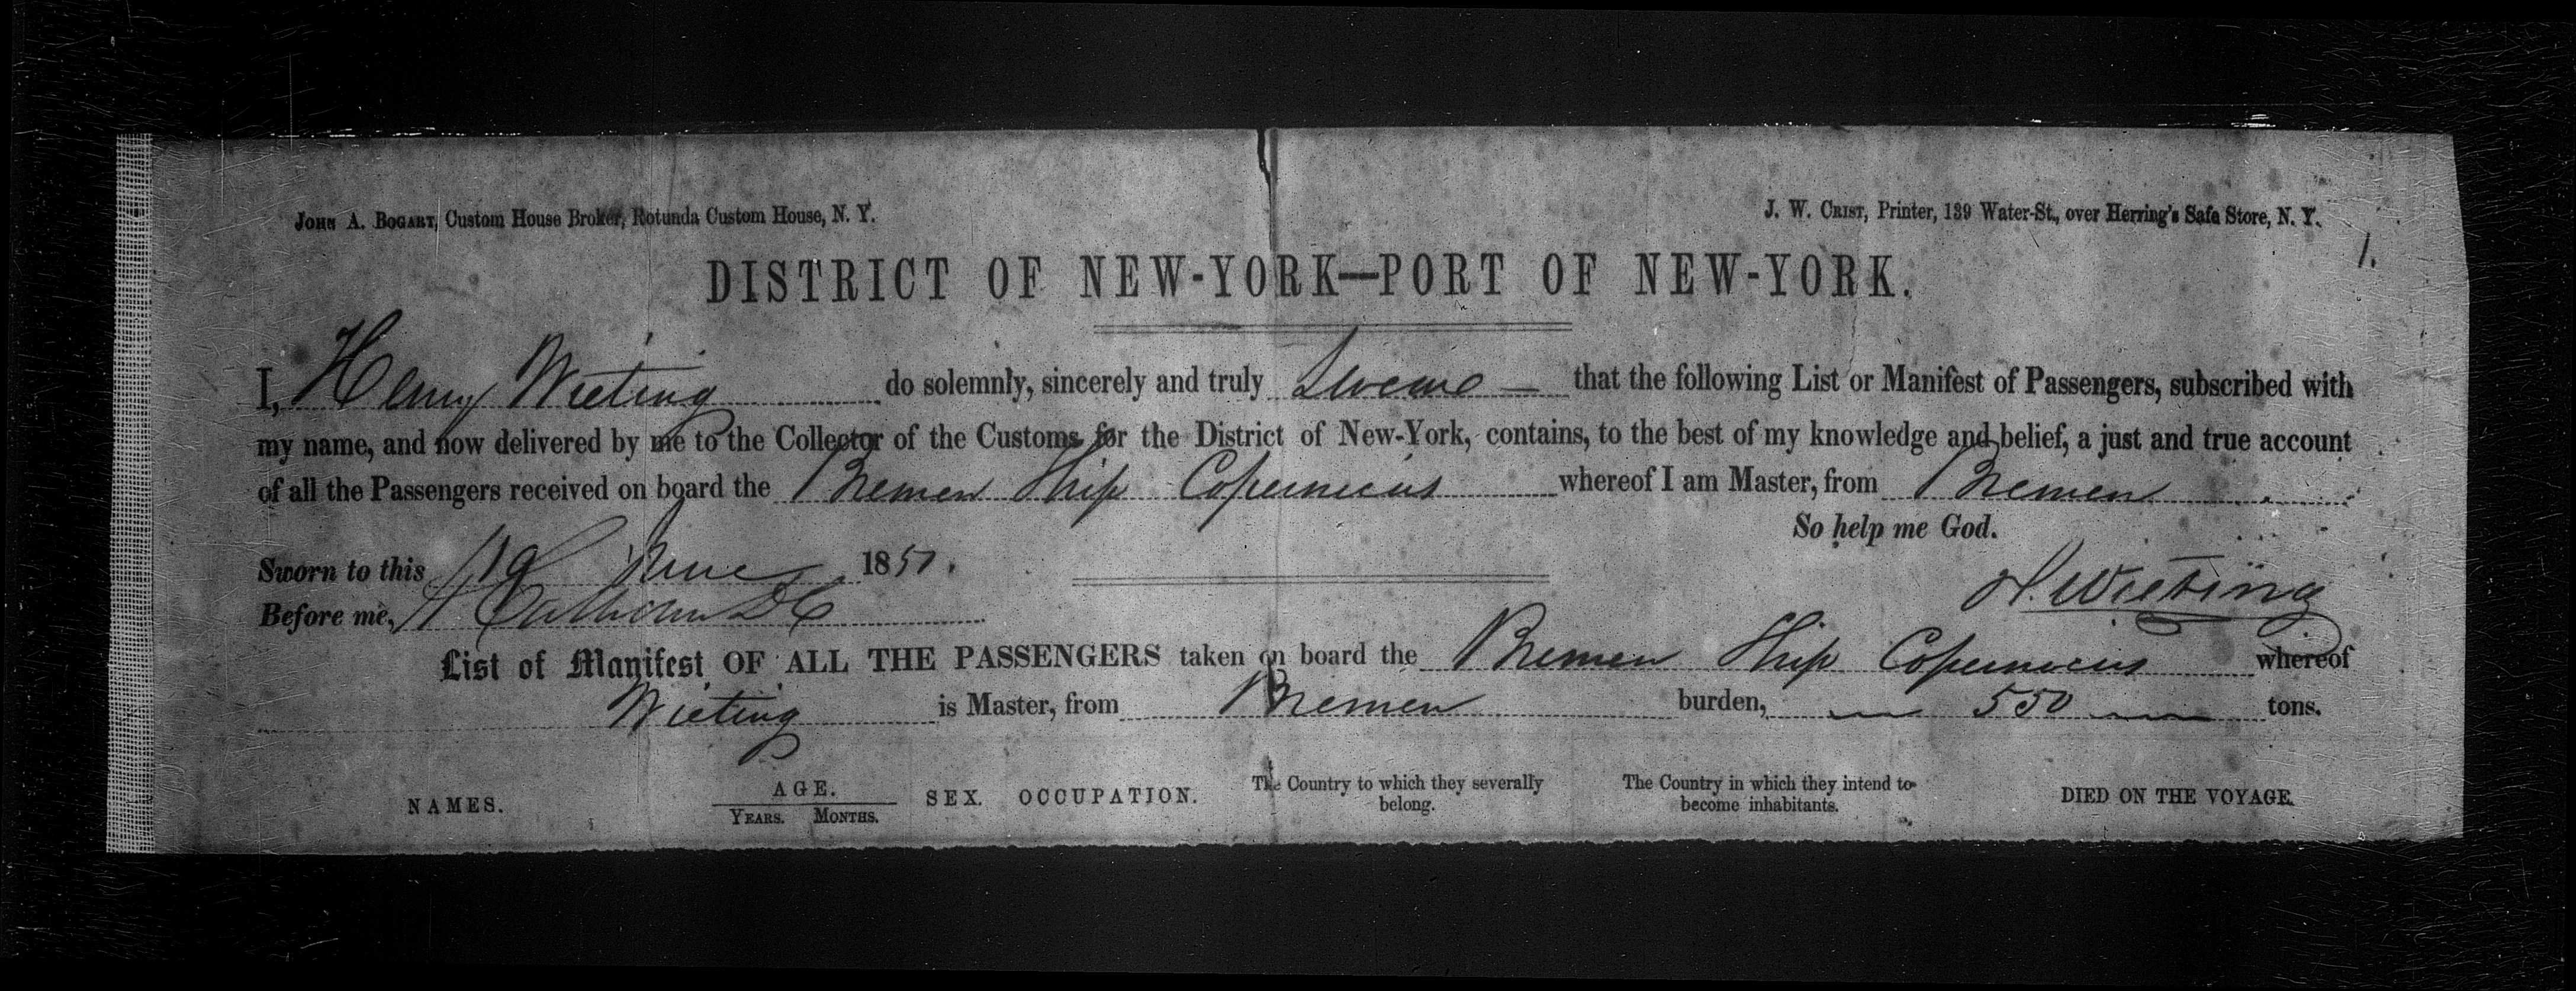 JOHN A. BOGART, Custom House Broker, Rotunda Custom House, N. Y.
J. W. CRIST, Printer, 139 Water-St., over Herring's Safe Store, N. Y.
1.
DISTRICT OF NEW-YORK—PORT OF NEW-YORK.
I, Henry Wieting do solemnly, sincerely and truly Sweare — that the following List or Manifest of Passengers, subscribed with
my name, and now delivered by me to the Collector of the Customs for the District of New-York, contains, to the best of my knowledge and belief, a just and true account
of all the Passengers received on board the Bremen Ship Copernicus whereof I am Master, from Bremen
So help me God.
Sworn to this 19 June 1851.
H. Wieting
Before me, Calhoun DC
List of Manifest OF ALL THE PASSENGERS taken on board the Bremen Ship Copernicus whereof
Wieting is Master, from Bremen burden, — 550 — tons.
NAMES. AGE. SEX. OCCUPATION. The Country to which they severally belong. The Country in which they intend to become inhabitants. DIED ON THE VOYAGE.
YEARS. MONTHS.